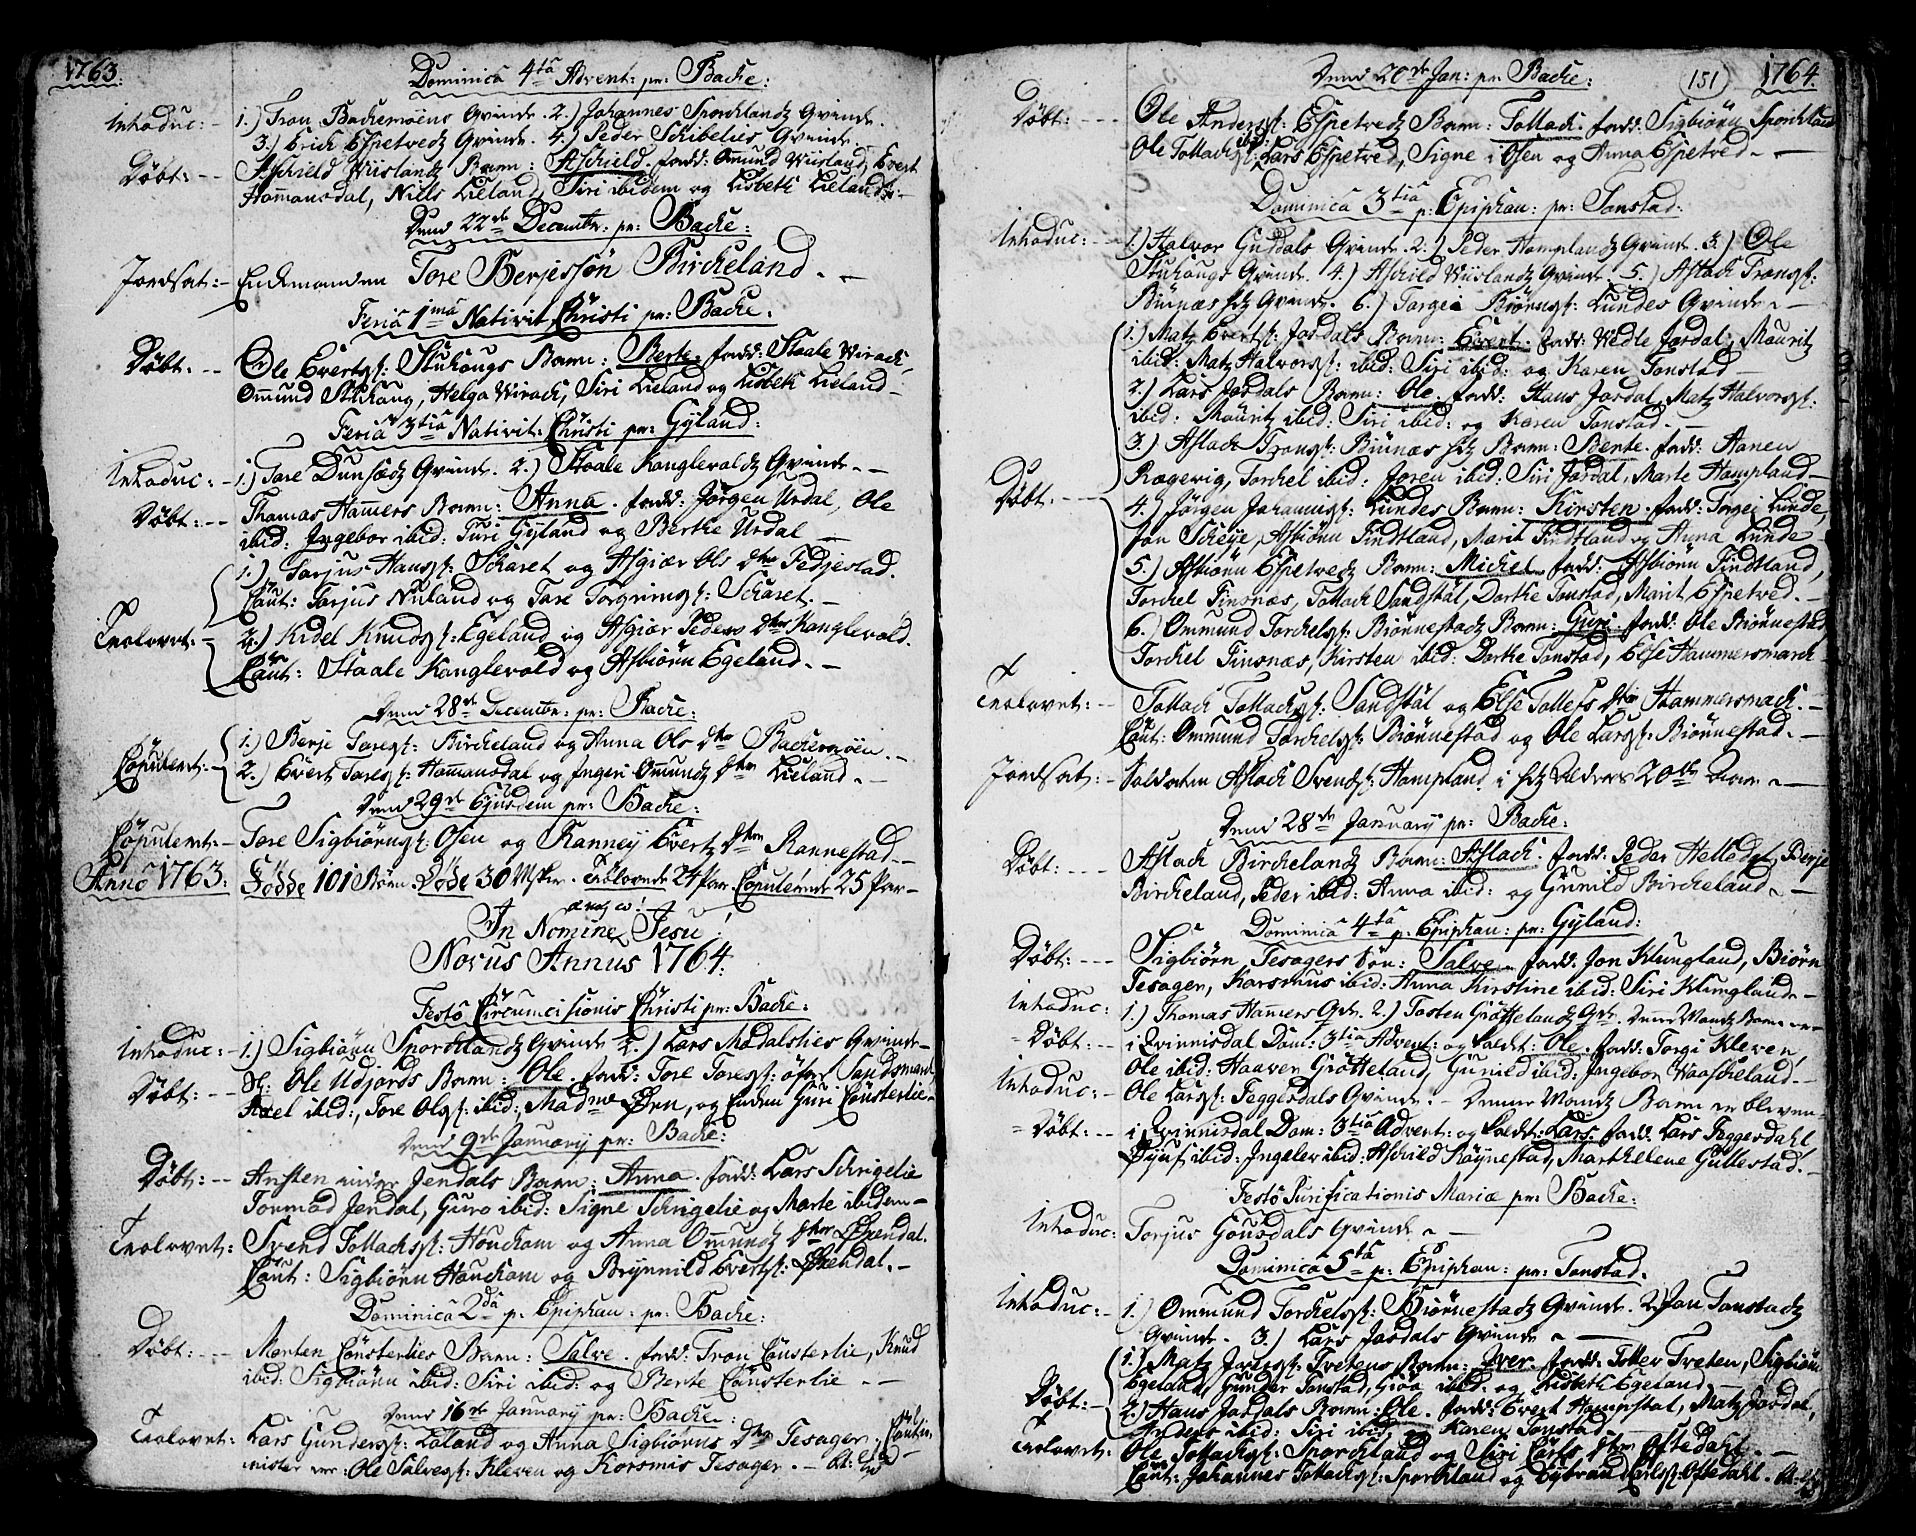 1763.
Dominica 4ta Advent: pr: Backe:
Introduc: 1.) Tron Backemoens Qvinde. 2.) Johannes Sporklandz Qvinde.
3.) Erich Espetvedz Qvinde. 4.) Peder Schibelies Qvinde.
Døbt: Aschield Wiislandz Barn: Aschield. fadd: Omund Wiisland, Evert
Homansdal, Nills Lieland, Siri ibidem og Lisbeth Lieland.
Dend 22de Decembr: pr: Backe:
Jordsat: Enckemanden Tore Berjessøn Birckeland.
Feria 1ma Nativit: Christi pr: Backe:
Døbt: Ole Evertss: Stuhougs Barn: Berte. fadd: Staale Wirack,
Ommund Stuhoug, Helga Wirack, Siri Lieland og Lisbeth Lieland
Feria 3tia Nativit: Christi pr: Gyland:
Introduc: 1.) Tore Dunsædz Qvinde. 2.) Staale Kanglevoldz Qvinde.
Døbt: Thomas Hamers Barn: Anna. fadd: Jørgen Urdal, Ole
ibid: Ingebor ibid: Turi Gyland og Berthe Urdal
Trolovet: 1.) Tarjus Hanss: Skaret og Asgier Ols dtr Fedjestad.
Caut: Tarjus Nuland og Tore Torgrimss: Skaret.
2.) Kidel Knudss: Egeland og Asgier Peders dtr Kanglevold.
Caut: Staale Kanglevold og Asbiørn Egeland.
Dend 28de Decembr: pr: Backe:
Copuleret: 1.) Berje Toress: Birckeland og Anna Ols dtr Backemoen.
2.) Evert Toress: Homansdal og Ingeri Omundz dtr Lieland.
Dend 29de Ejusdem pr: Backe:
Copuleret: Tore Sigbiørnss: Osen og Ranney Evertz dtr Rannestad.
Anno 1763: Fødde 101 Børn. Døde 30 Msker. Trolovede 24 Par. Copulerede 25 Par
In Nomine Jesu!
Novus Annus 1764.
Festo Circumcisionis Christi pr: Backe:
Introduc: 1.) Sigbiørn Sporcklandz Qvinde 2.) Lars Modalslies Qvinde
Døbt: Sl: Ole Udjords Barn: Ole. fadd: Tore Toress: øfre Landsmand,
Axel ibid:, Tore Olss: ibid: Madme Øen, og Enken Guri Consterlie
Dend 9de January pr: Backe:
Døbt: Ansten nider Jendals Barn: Anna. fadd: Lars Schrigelie
Tormod Jendal, Guro ibid: Signe Schrigelie og Marte ibidem
Trolovet: Svend Tollachss: Houckom og Anna Omundz dtr Øxendal.
Caut: Sigbiørn Houckom og Brynnild Evertss: Øxendal.
Dominica 2da p: Epiphan: pr: Backe:
Døbt: Morten Consterlies Barn: Salve. fadd: Tron Consterlie, Knud
ibid: Sigbiørn ibid: Siri ibid: og Berte Consterlie
Dend 16de January pr: Backe:
Trolovet: Lars Gunderss: Loland og Anna Sigbiørns dtr Tesager. Cautio
nister er: Ole Salvess: Kleven og Korsmis Tesager.
151
1764.
Dend 20de Jan: pr: Backe:
Døbt: Ole Anderss: Espetvedz Barn: Tollack. fadd: Sigbiørn Sporckland
Ole Tollachss: ibid: Lars Espetved, Signe i Osen og Anna Espetved.
Dominica 3tia p: Epiphan: pr: Tonstad:
Introduc: 1.) Halvor Guddals Qvinde. 2.) Peder Homplandz Qvinde. 3.) Ole
Stuhougs Qvinde. 4.) Aschild Wiislandz Qvinde. 5.) Aslach Tronss:
Biunæs Qvinde. 6.) Torgei Biørnss: Lundes Qvinde
Døbt: 1.) Matz Evertss: Josdals Barn: Evert. fadd: Wedle Josdal, Mouritz
ibid: Matz Halvorss: ibid: Siri ibid: og Karen Tonstad
2.) Lars Josdals Barn: Ole. fadd: Hans Josdal, Matz Halvorss:
ibid: Mouritz ibid: Siri ibid: og Karen Tonstad.
3.) Aslach Tronss: Biunæs Barn: Bente. fadd: Aanen
Rægevig, Torckel ibid: Joren ibid: Siri Josdal, Marte Hompland
4.) Jørgen Johannss: Lundes Barn: Kirsten. fadd: Torgei Lunde,
Jon Scheye, Asbiørn Findtland, Marit Findtland og Anna Lunde
5.) Asbiørn Espetvedz Barn: Michel. fadd: Asbiørn Findtland,
Torckel Finsnæs, Tollach Sandstøl, Dorthe Tonstad, Marit Espetved.
6.) Ommund Torckelss: Biørnestadz Barn: Guri. fadd: Ole Biørnestad
Torckel Finsnæs, Kirsten ibid: Dorthe Tonstad, Else Hammersmarck
Trolovet: Tollach Tollachss: Sandstøl og Else Tollefs dtr Hammersmack.
Caut: Ommund Torckelss: Biørnestad og Ole Larss: Biørnestad.
Jordsat: Soldaten Aslach Svendss: Hompland i hs Alders 20de Aar
Dend 28de January pr: Backe:
Døbt: Aslach Birckelandz Barn: Aslach. fadd: Peder Helledal, Berje
Birckeland, Peder ibid: Anna ibid: og Gunild Birckeland
Dominica 4ta p: Epiphan: pr: Gyland:
Døbt: Sigbiørn Tesagers Søn: Salve. fadd: Jon Klungland, Biørn
Tesager, Korsmus ibid: Anna Kirstine ibid: Siri Klungland
Introduc: 1.) Thomas Hamers Qvde. 2.) Tosten Grøttelandz Qvde. Denne Mandz Barn er
Døbt: i Qvinnisdal Dom: 3tia Advent: og kaldet: Ole. fadd: Torgi Kleven,
Ole ibid: Haaven Grøtteland, Gunild ibid: Ingebor Haascheland.
Introduc: Ole Larss: Feggesdals Qvinde. Denne Mandz Barn er bleven
Døbt: i Qvinnisdal Dom: 3tia Advent: og kaldet: Lars. fadd: Lars Feggesdahl
Siuf ibid: Ingelev ibid: Aschild Røynestad, Marthelene Gullestad.
Festo Purificationis Mariæ pr: Backe:
Introduc: Torjus Gousdals Qvinde
Dominica 5ta p: Epiphan: pr: Tonstad.
Introduc: 1.) Ommund Torckelss: Biørnestadz Qvinde. 2.) Jon Tonstadz
Qvinde. 3.) Lars Josdals Qvinde
Døbt: 1.) Matz Tretens Barn: Iver. fadd: Tollev Treten, Sigbiørn
Egeland, Gunder Tonstad, Gioa ibid: og Lisbeth Egeland
2.) Hans Josdals Barn: Ole. fadd: Evert Hompstøl, Matz Josdal,
Anders ibid: Siri ibid: og Karen Tonstad.
Trolovet: Ole Tollachss: Sporckland og Siri Carls dtr Oftedahl.
Caut: Johannes Tollachss: Sporckland og Sybrand Carlss: Oftedahl.